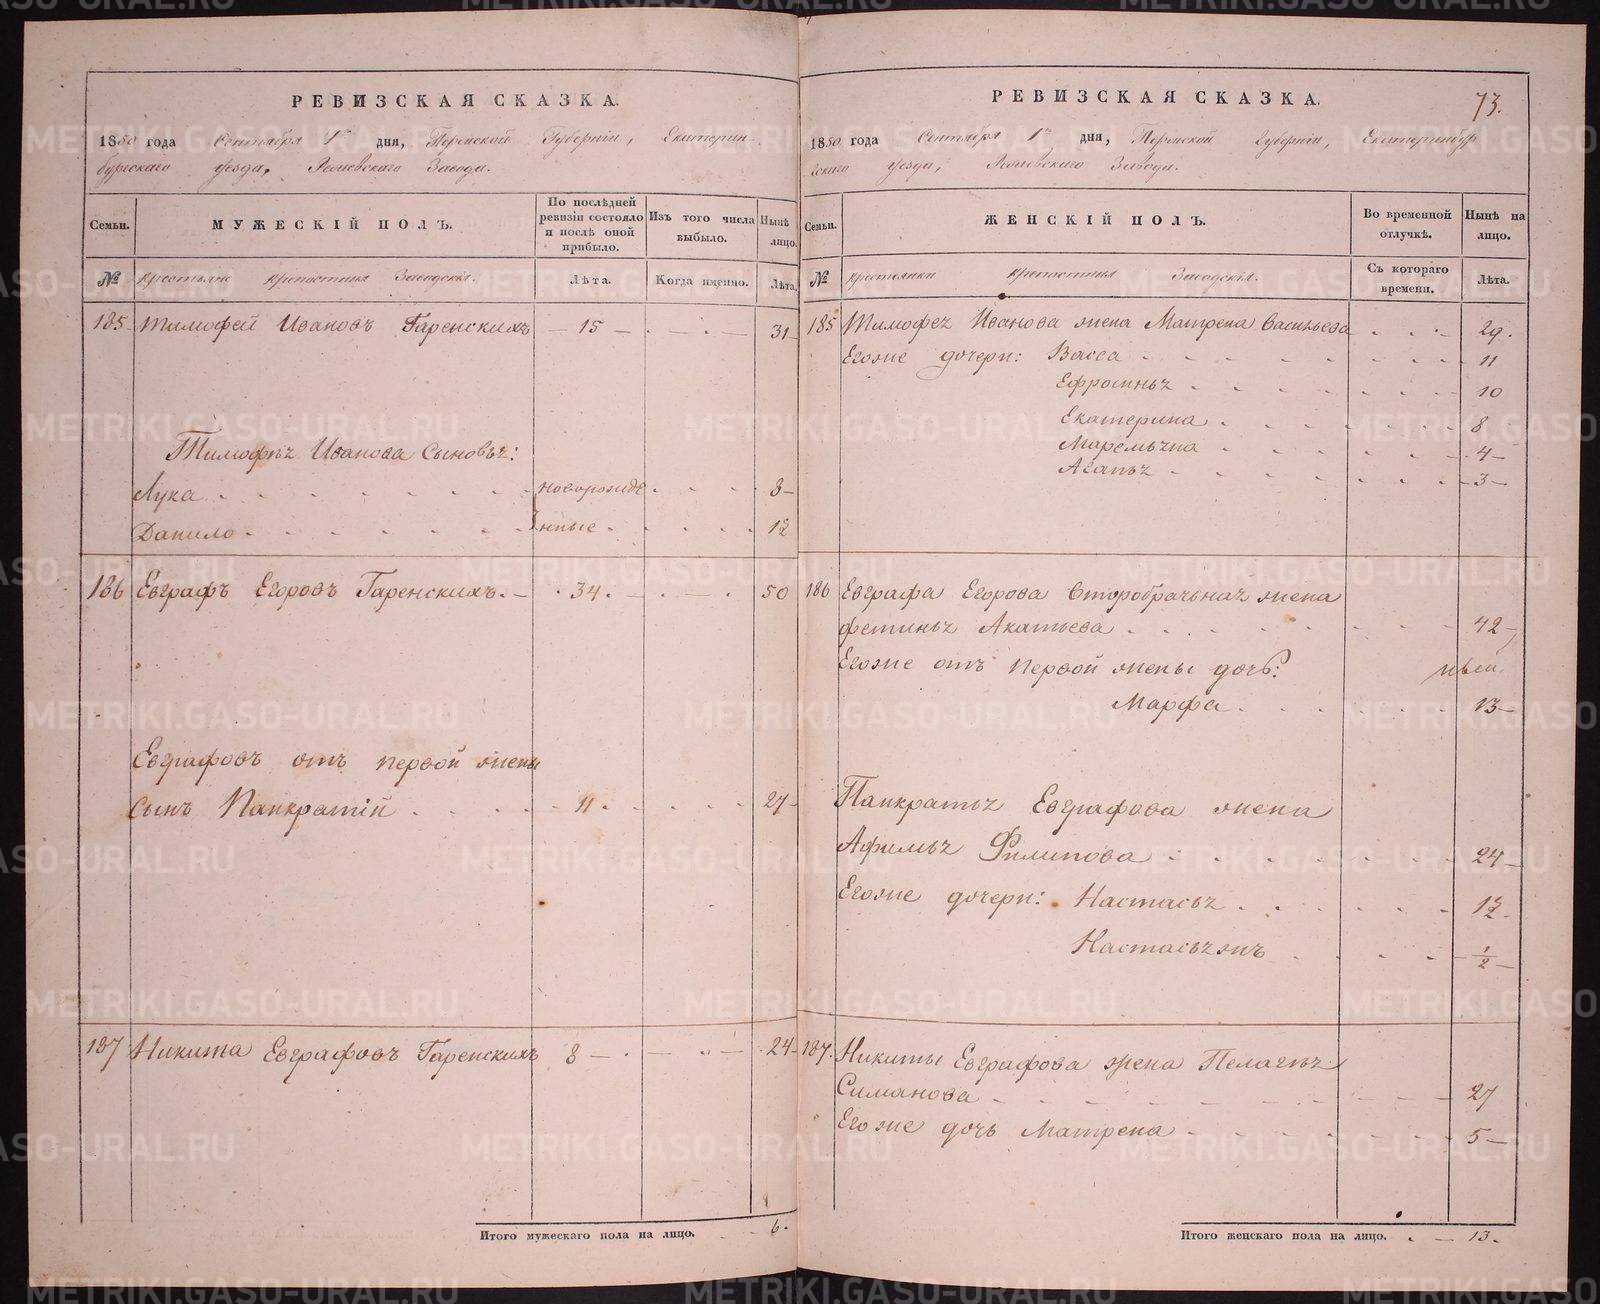 РЕВИЗСКАЯ СКАЗКА.
1850 года Сентября 1го дня, Пермской Губерніи, Екатерин-
бургскаго уезда, Завода.
Семьи.
МУЖЕСКІЙ ПОЛЪ.
По послѣдней ревизіи состояло и послѣ оной прибыло.
Изъ того числа выбыло.
Нынѣ на лицо.
№ Крестьяне крепостныя Заводскія.
Лѣта.
Когда именно.
Лѣта.
185 Тимофей Ивановъ Гаренскихъ — 15 — 31
Тимофея Иванова сыновья:
Лука новорожде 8
Данило нные 1½
186 Евграфъ Егоровъ Гаренскихъ. 34. 50
Евграфовъ отъ первой жены
сынъ Панкратій 11. 27
187 Никита Евграфовъ Гаренскихъ 8 — 24
Итого мужескаго пола на лицо. 6.
РЕВИЗСКАЯ СКАЗКА.
73.
1850 года Сентября 1го дня, Пермской Губерніи, Екатеринбур
гскаго уезда, Завода.
Семьи.
ЖЕНСКІЙ ПОЛЪ.
Во временной отлучкѣ.
Нынѣ на лицо.
№ крестьянки крепостныя Заводскія.
Съ котораго времени.
Лѣта.
185 Тимофея Иванова жена Матрена Васильева 29.
Егоже дочери: Васса 11
Ефросинья 10
Екатерина 8
Маремьяна 4
Агапья 3
186 Евграфа Егорова второбрачьная жена
Фетинья Акатьева 42
Егоже отъ первой жены дочь:
Марфа 13
Панкратья Евграфова жена
Афимья Филипова 24
Егоже дочери: Настасья 1½
Настасьяжъ ½
187. Никиты Евграфова жена Пелагея
Симанова 27
Егоже дочь Матрена 5
Итого женскаго пола на лицо. 13.
METRIKI.GASO-URAL.RU